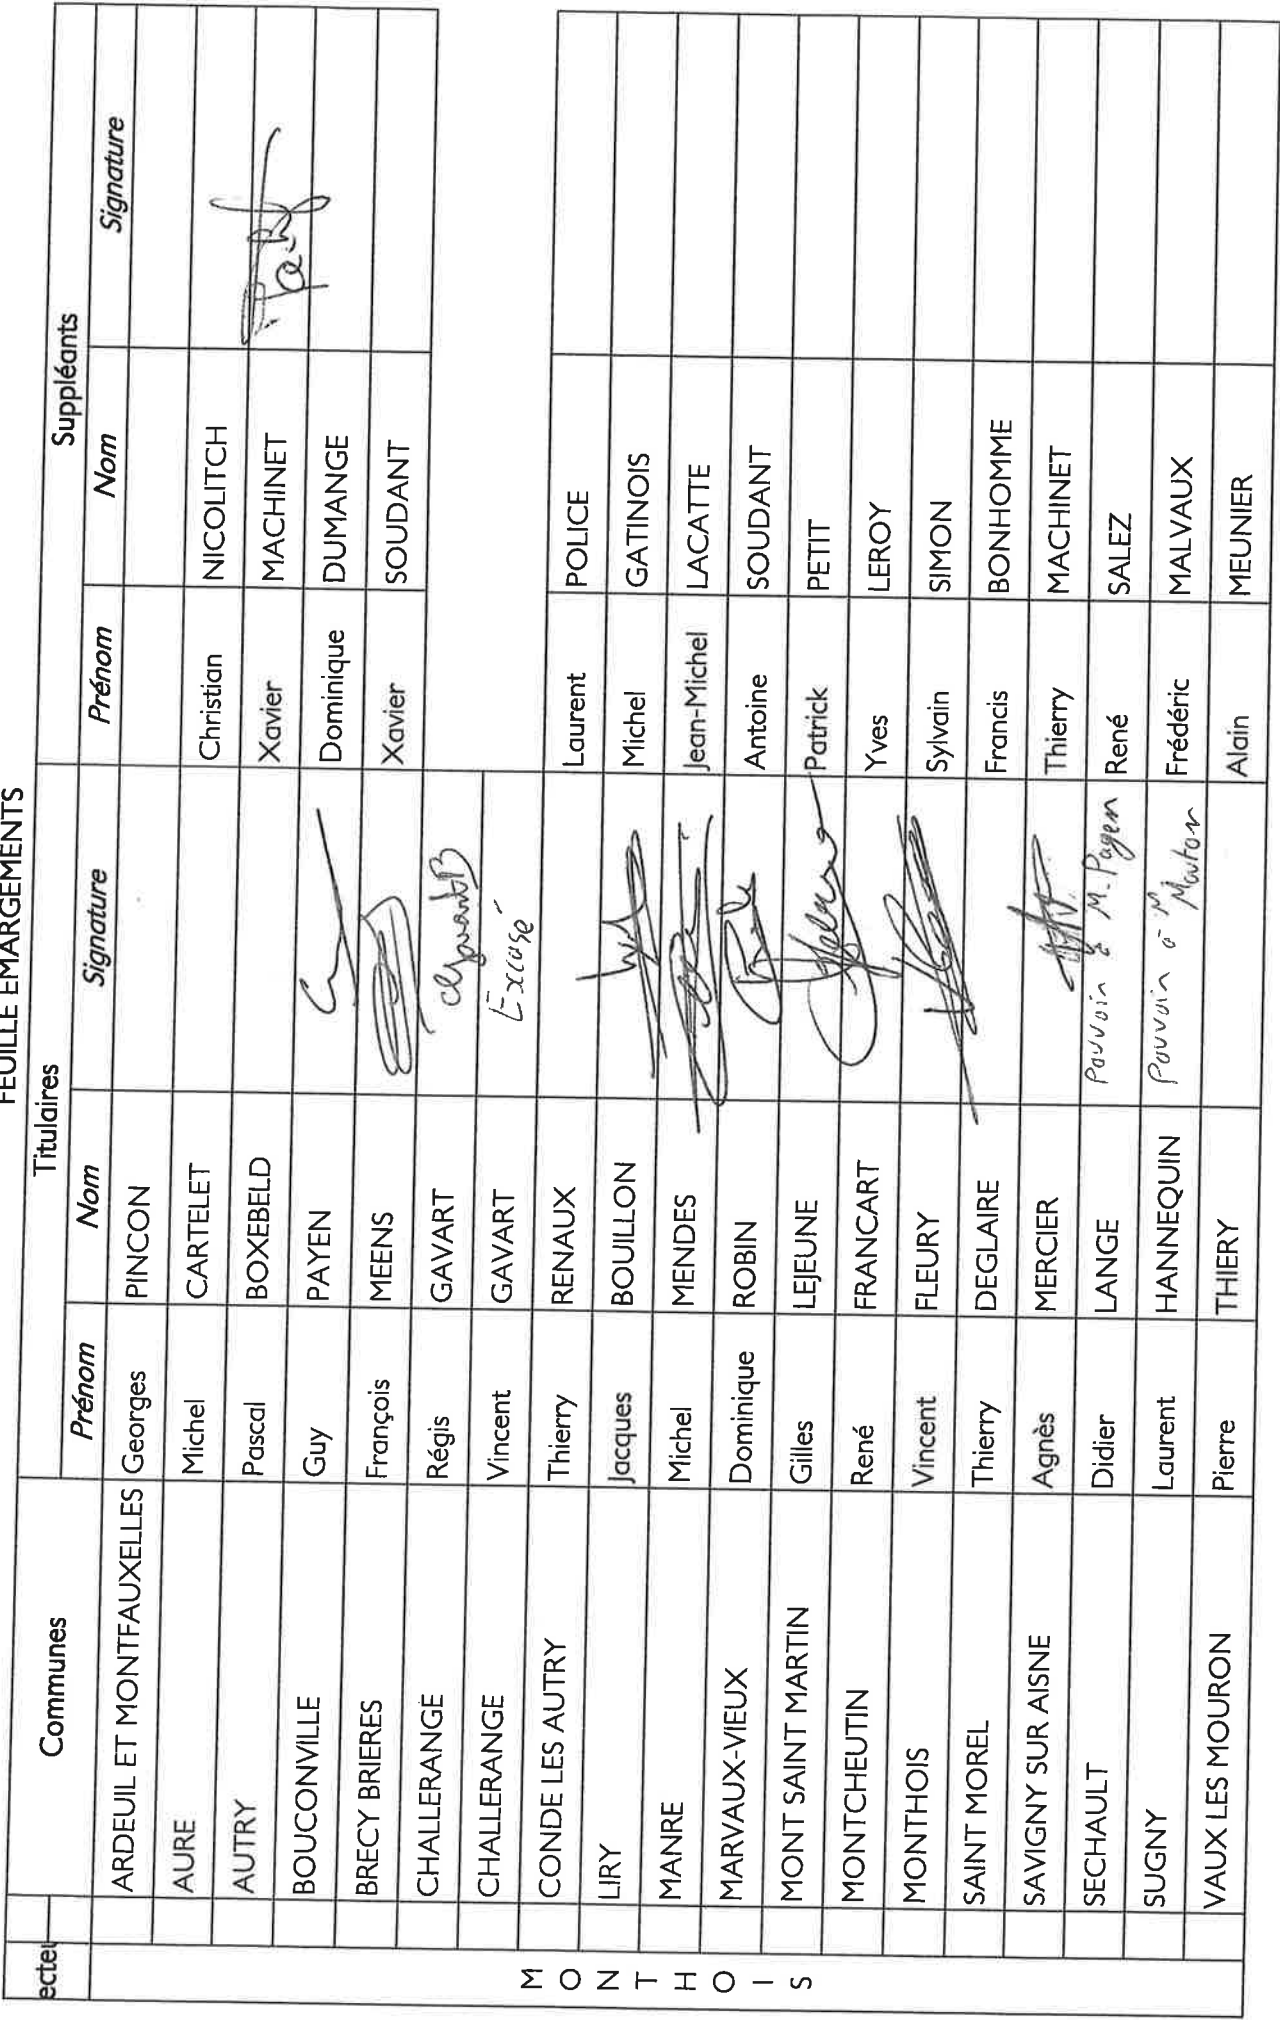 FEUILLE EMARGEMENTS
Communes Titulaires Suppléants
Prénom Nom Signature Prénom Nom Signature
ARDEUIL ET MONTFAUXELLES Georges PINCON
AURE Michel CARTELET Christian NICOLITCH
AUTRY Pascal BOXEBELD Xavier MACHINET
BOUCONVILLE Guy PAYEN Dominique DUMANGE
BRECY BRIERES François MEENS Xavier SOUDANT
CHALLERANGE Régis GAVART
CHALLERANGE Vincent GAVART Excusé
CONDE LES AUTRY Thierry RENAUX Laurent POLICE
LIRY Jacques BOUILLON Michel GATINOIS
MANRE Michel MENDES Jean-Michel LACATTE
MARVAUX-VIEUX Dominique ROBIN Antoine SOUDANT
MONT SAINT MARTIN Gilles LEJEUNE Patrick PETIT
MONTCHEUTIN René FRANCART Yves LEROY
MONTHOIS Vincent FLEURY Sylvain SIMON
SAINT MOREL Thierry DEGLAIRE Francis BONHOMME
SAVIGNY SUR AISNE Agnès MERCIER Thierry MACHINET
SECHAULT Didier LANGE Pouvoir à M. Payen René SALEZ
SUGNY Laurent HANNEQUIN Pouvoir à M Mouton Frédéric MALVAUX
VAUX LES MOURON Pierre THIERY Alain MEUNIER
ecteu
MONTHOIS